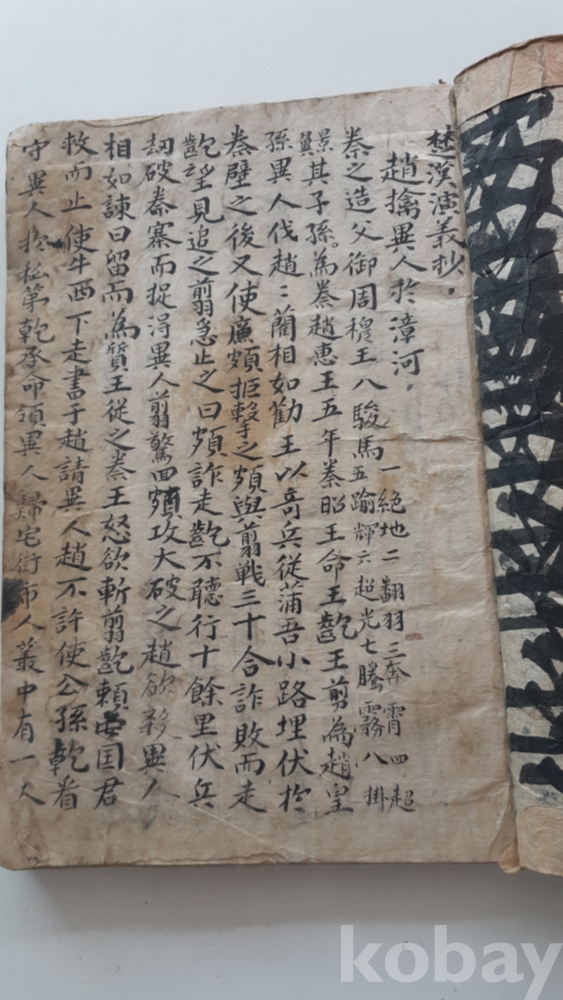 楚漢演義抄。
趙擒異人於漳河。
秦之造父御周穆王八駿馬一絶地二翻羽三奔霄四超
五踰輝六超光七騰霧八掛
翼其子孫。為秦趙惠王五年秦昭王命王齕王剪為趙皇
孫異人伐趙〻藺相如勸王以奇兵從蒲吾小路埋伏於
秦壁之後又使廉頗拒擊之頗與剪戰三十合詐敗而走
齕望見追之剪急止之曰頗詐走齕不聽行十餘里伏兵
刼破秦寨而捉得異人剪驚回頗攻大破之趙欲殺異人
相如諫曰留而為質王從之秦王怒欲斬剪齕賴田君
救而止使牛西下走書于趙請異人趙不許使公孫乾看
守異人於私第乾承命領異人歸宅街市人叢中有一人
kobay